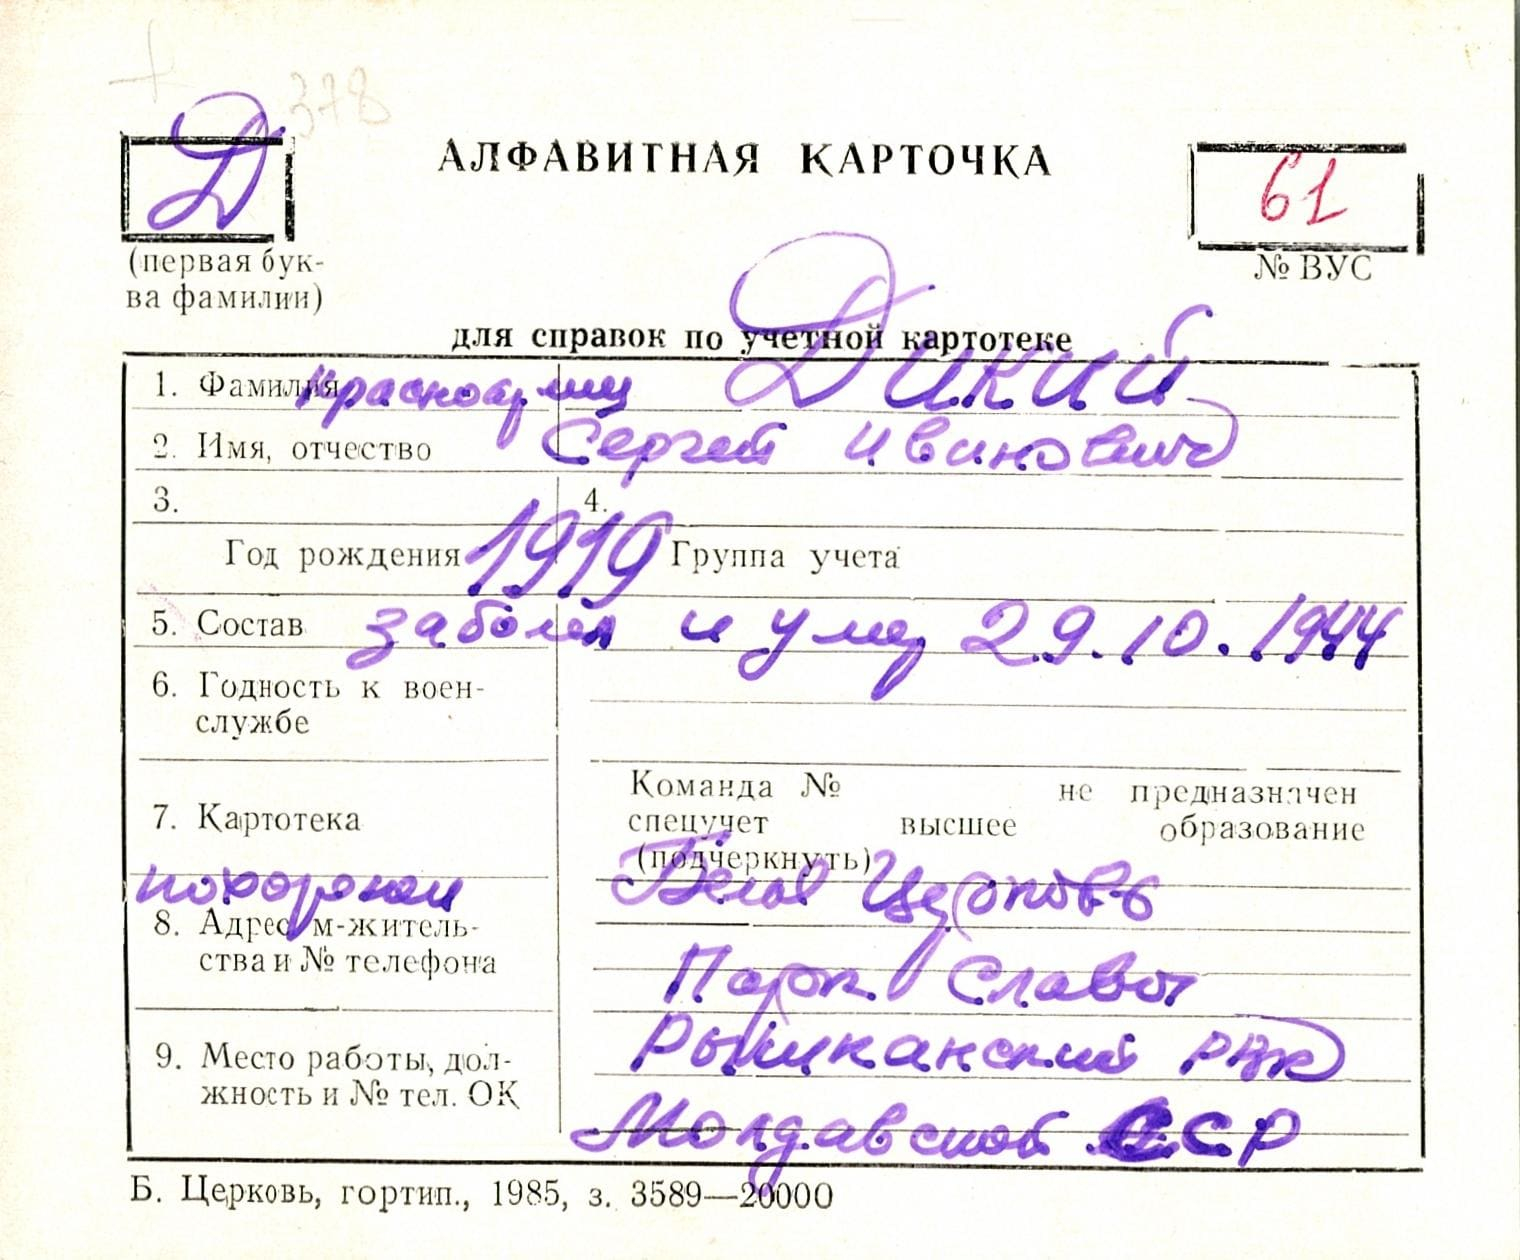 378
Д
АЛФАВИТНАЯ КАРТОЧКА
61
(первая бук-
ва фамилии)
№ ВУС
для справок по учетной картотеке
1. Фамилия Красноармец Дикий
2. Имя, отчество Сергей Иванович
3.
4.
Год рождения 1919 Группа учета
5. Состав заболел и умер 29.10.1944
6. Годность к воен-
службе
Команда № не предназначен
7. Картотека
спецучет высшее образование
(подчеркнуть)
похоронен Белая Церковь
8. Адрес м-житель-
ства и № телефона
Парк Славы
9. Место работы, дол-
жность и № тел. ОК
Рышканский РВК
Молдавской ССР
Б. Церковь, гортип., 1985, з. 3589—20000